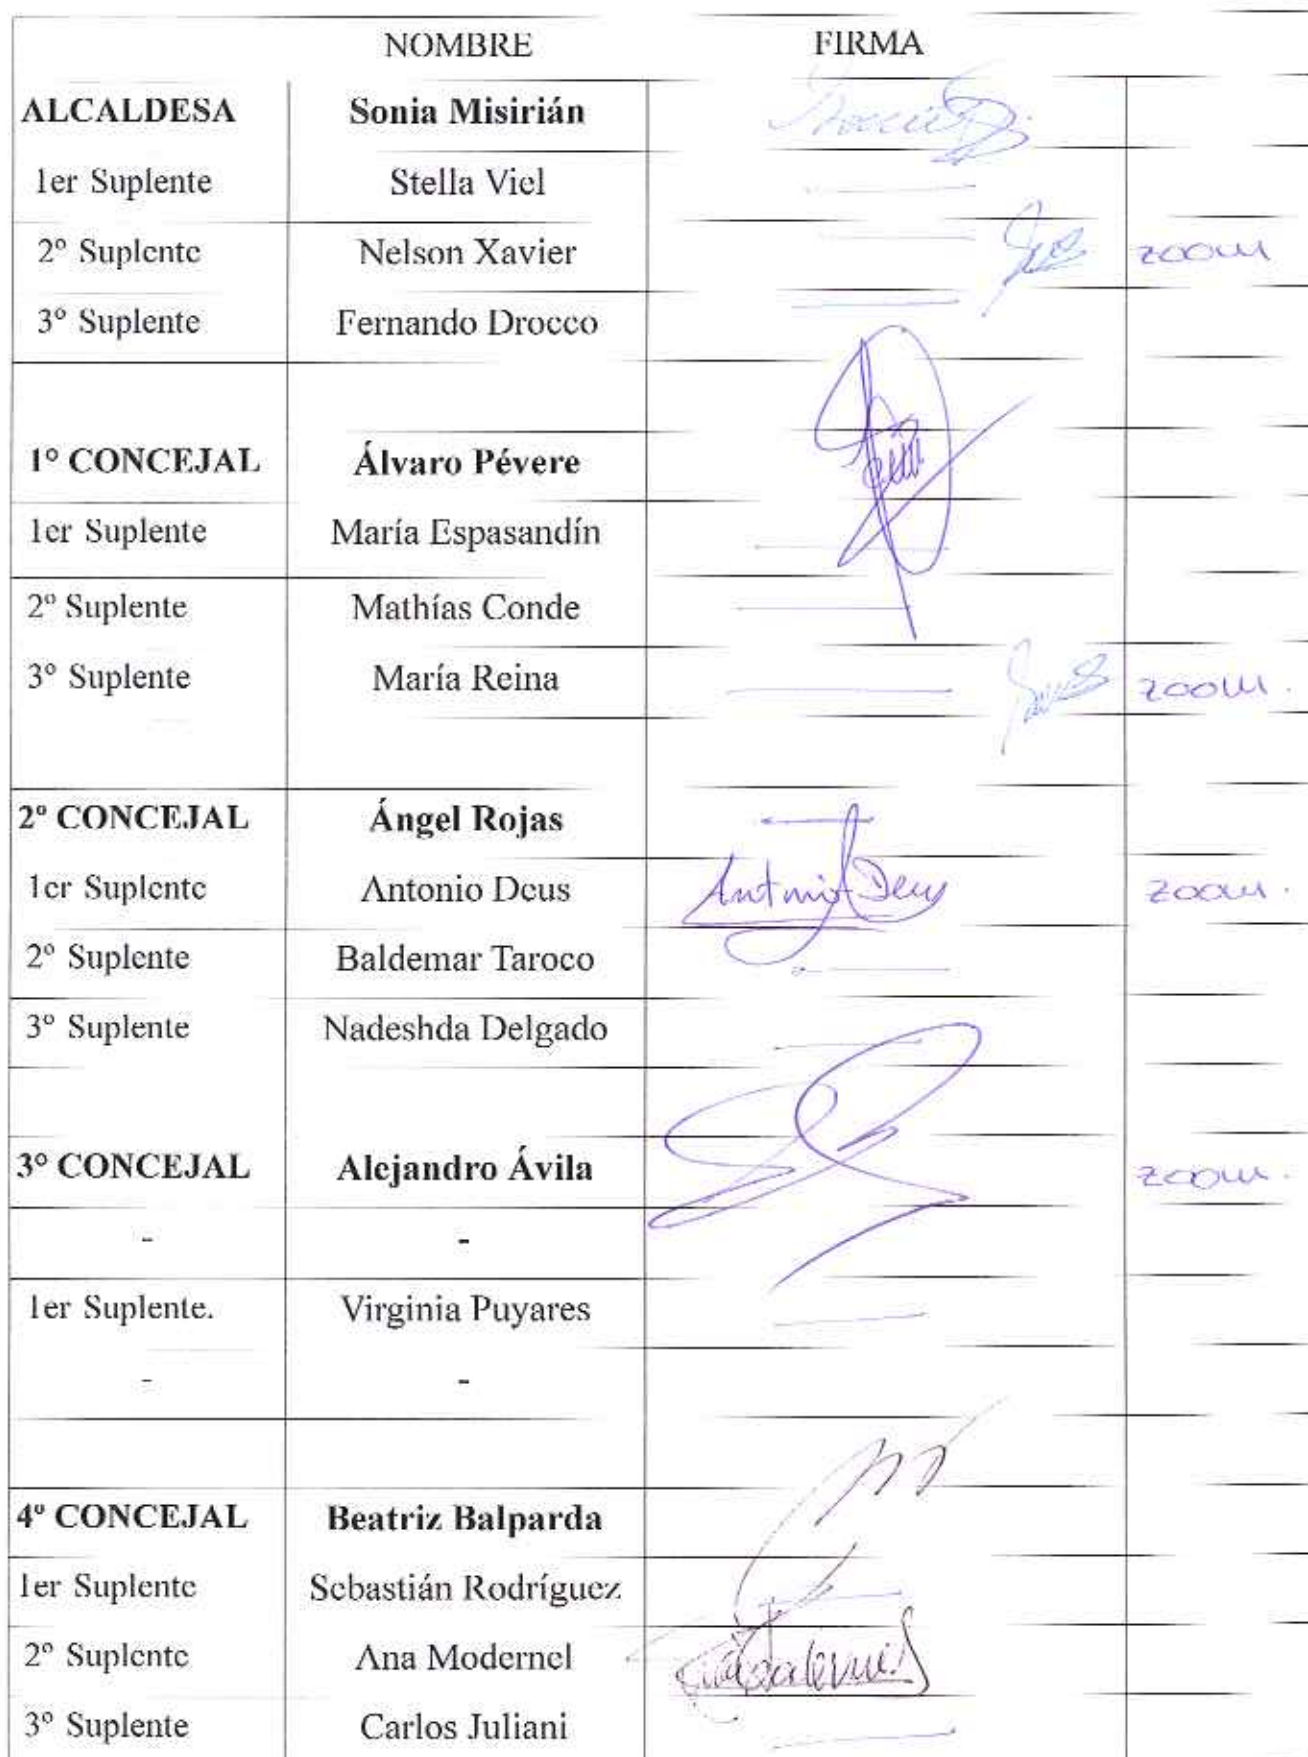 NOMBRE FIRMA
ALCALDESA Sonia Misirián
1er Suplente Stella Viel
2º Suplente Nelson Xavier zoom
3º Suplente Fernando Drocco
1º CONCEJAL Álvaro Pévere
1er Suplente María Espasandín
2º Suplente Mathías Conde
3º Suplente María Reina zoom.
2º CONCEJAL Ángel Rojas
1er Suplente Antonio Deus Antonio Deus zoom.
2º Suplente Baldemar Taroco
3º Suplente Nadeshda Delgado
3º CONCEJAL Alejandro Ávila zoom.
- -
1er Suplente. Virginia Puyares
- -
4º CONCEJAL Beatriz Balparda
1er Suplente Sebastián Rodríguez
2º Suplente Ana Modernel
3º Suplente Carlos Juliani